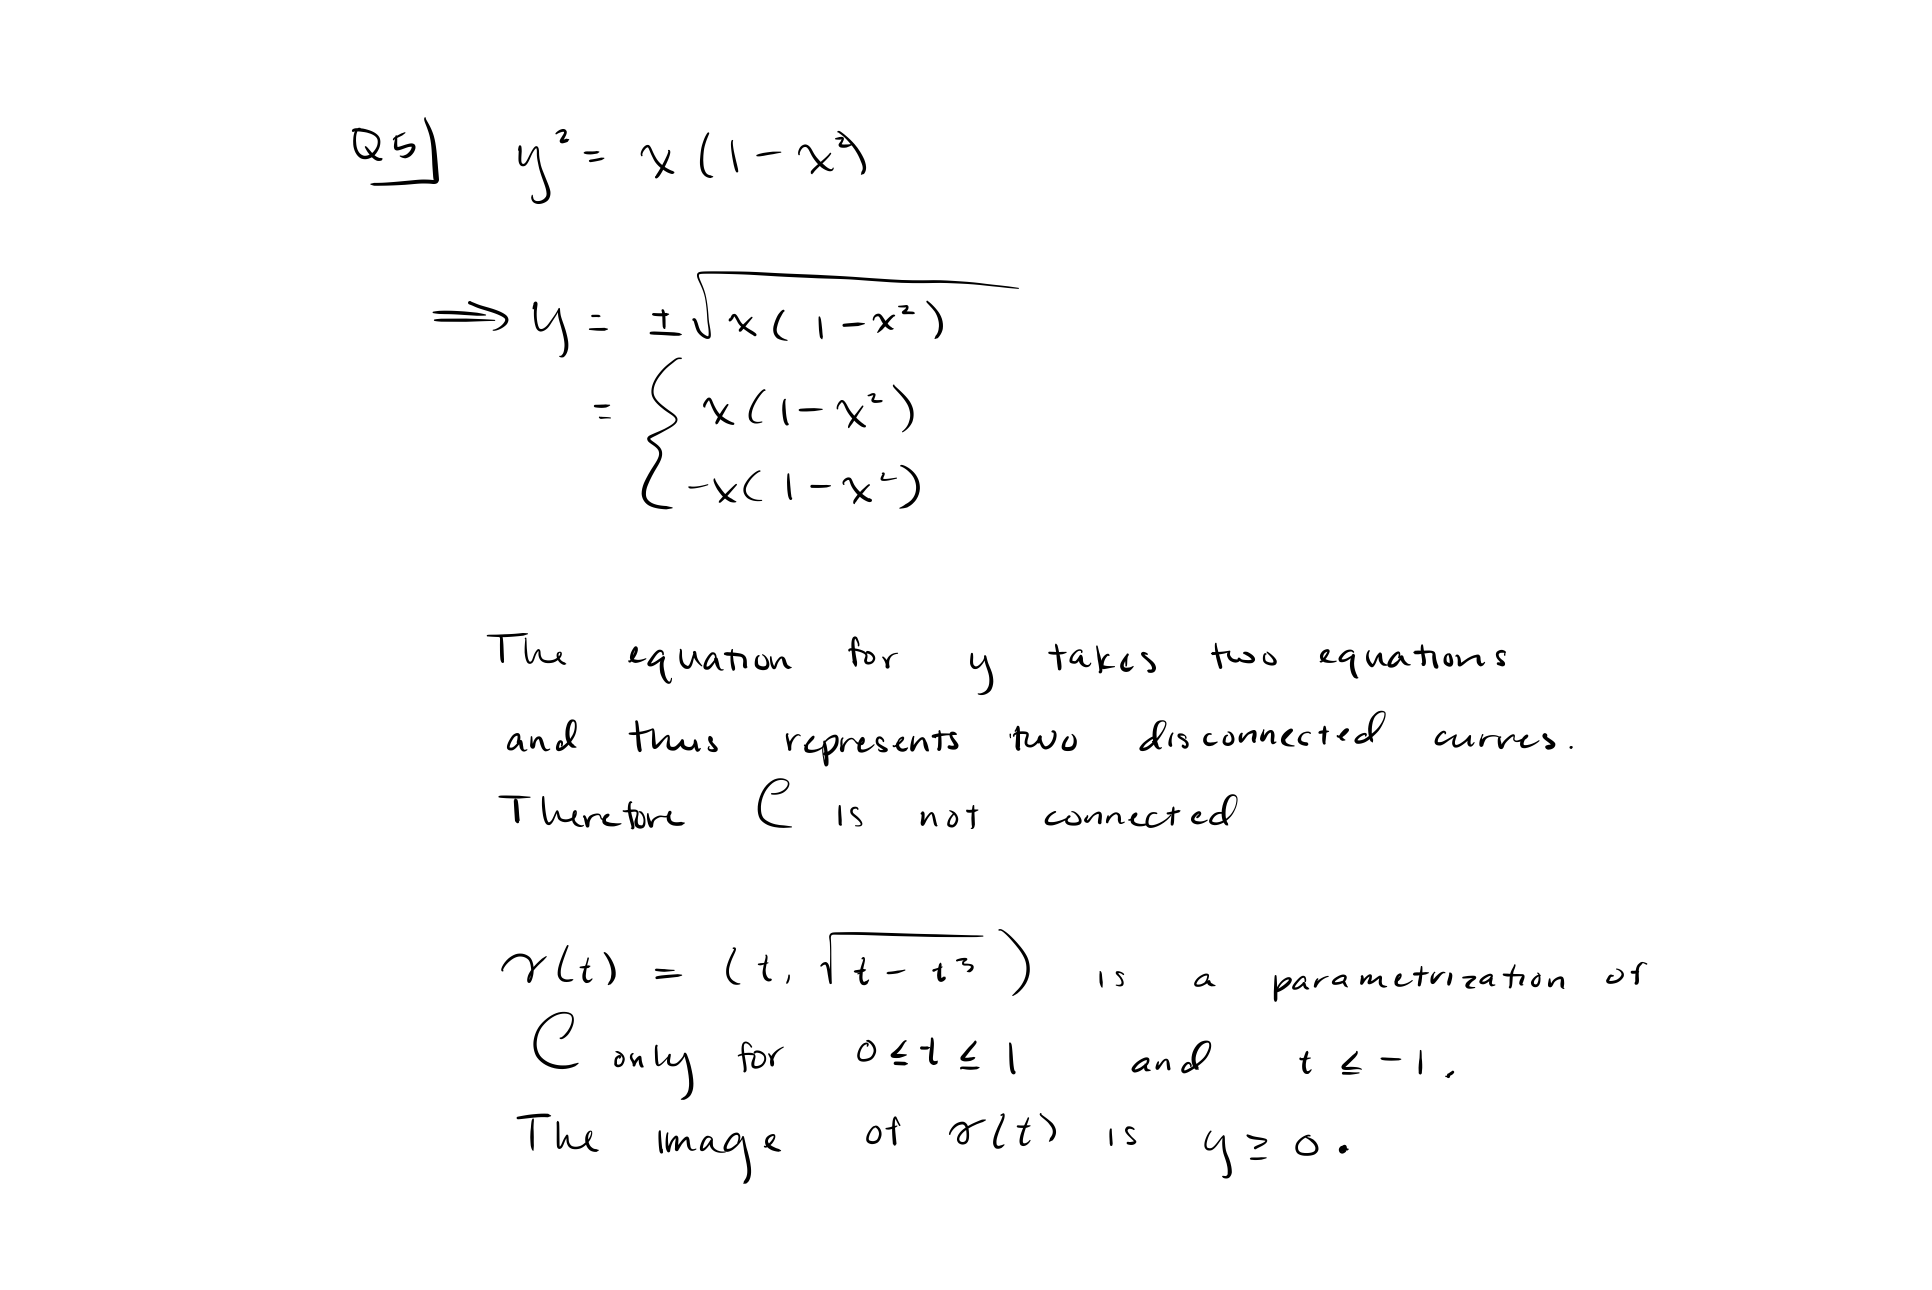 Q5] y² = x(1-x²)
⟹ y = ±√x(1-x²)
= { x(1-x²)
-x(1-x²)
The equation for y takes two equations
and thus represents two disconnected curves.
Therefore C is not connected
γ(t) = (t, √t-t³) is a parametrization of
C only for 0≤t≤1 and t≤-1.
The image of γ(t) is y≥0.